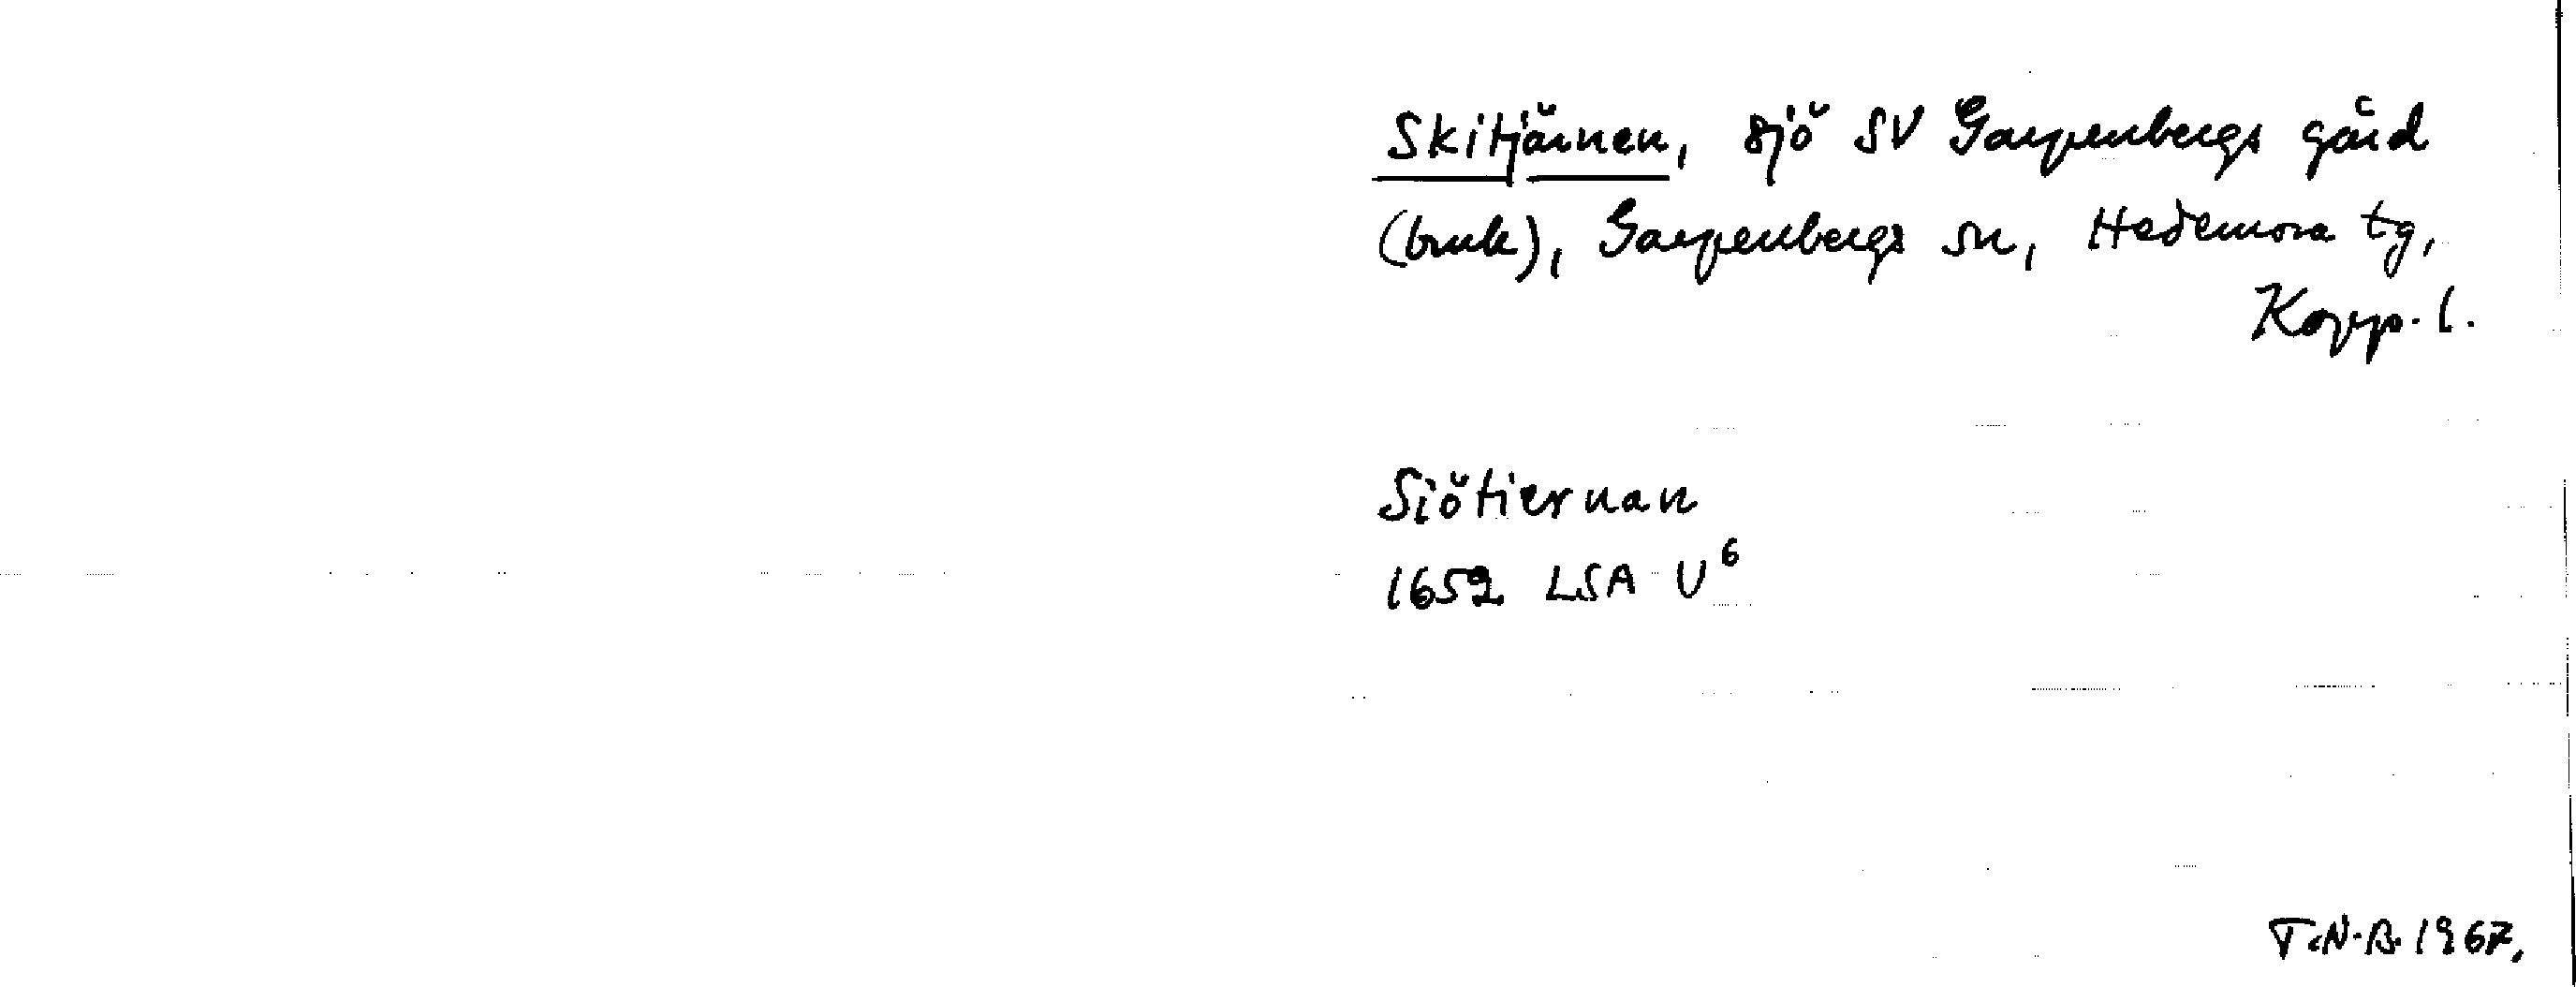 Skitjärnen, sjö SV Garpenbergs gård
(bruk), Garpenbergs sn, Hedemora tg,
Kopp. l.
Siötiernan
1652 LSA U⁶
T.N.B. 1967,